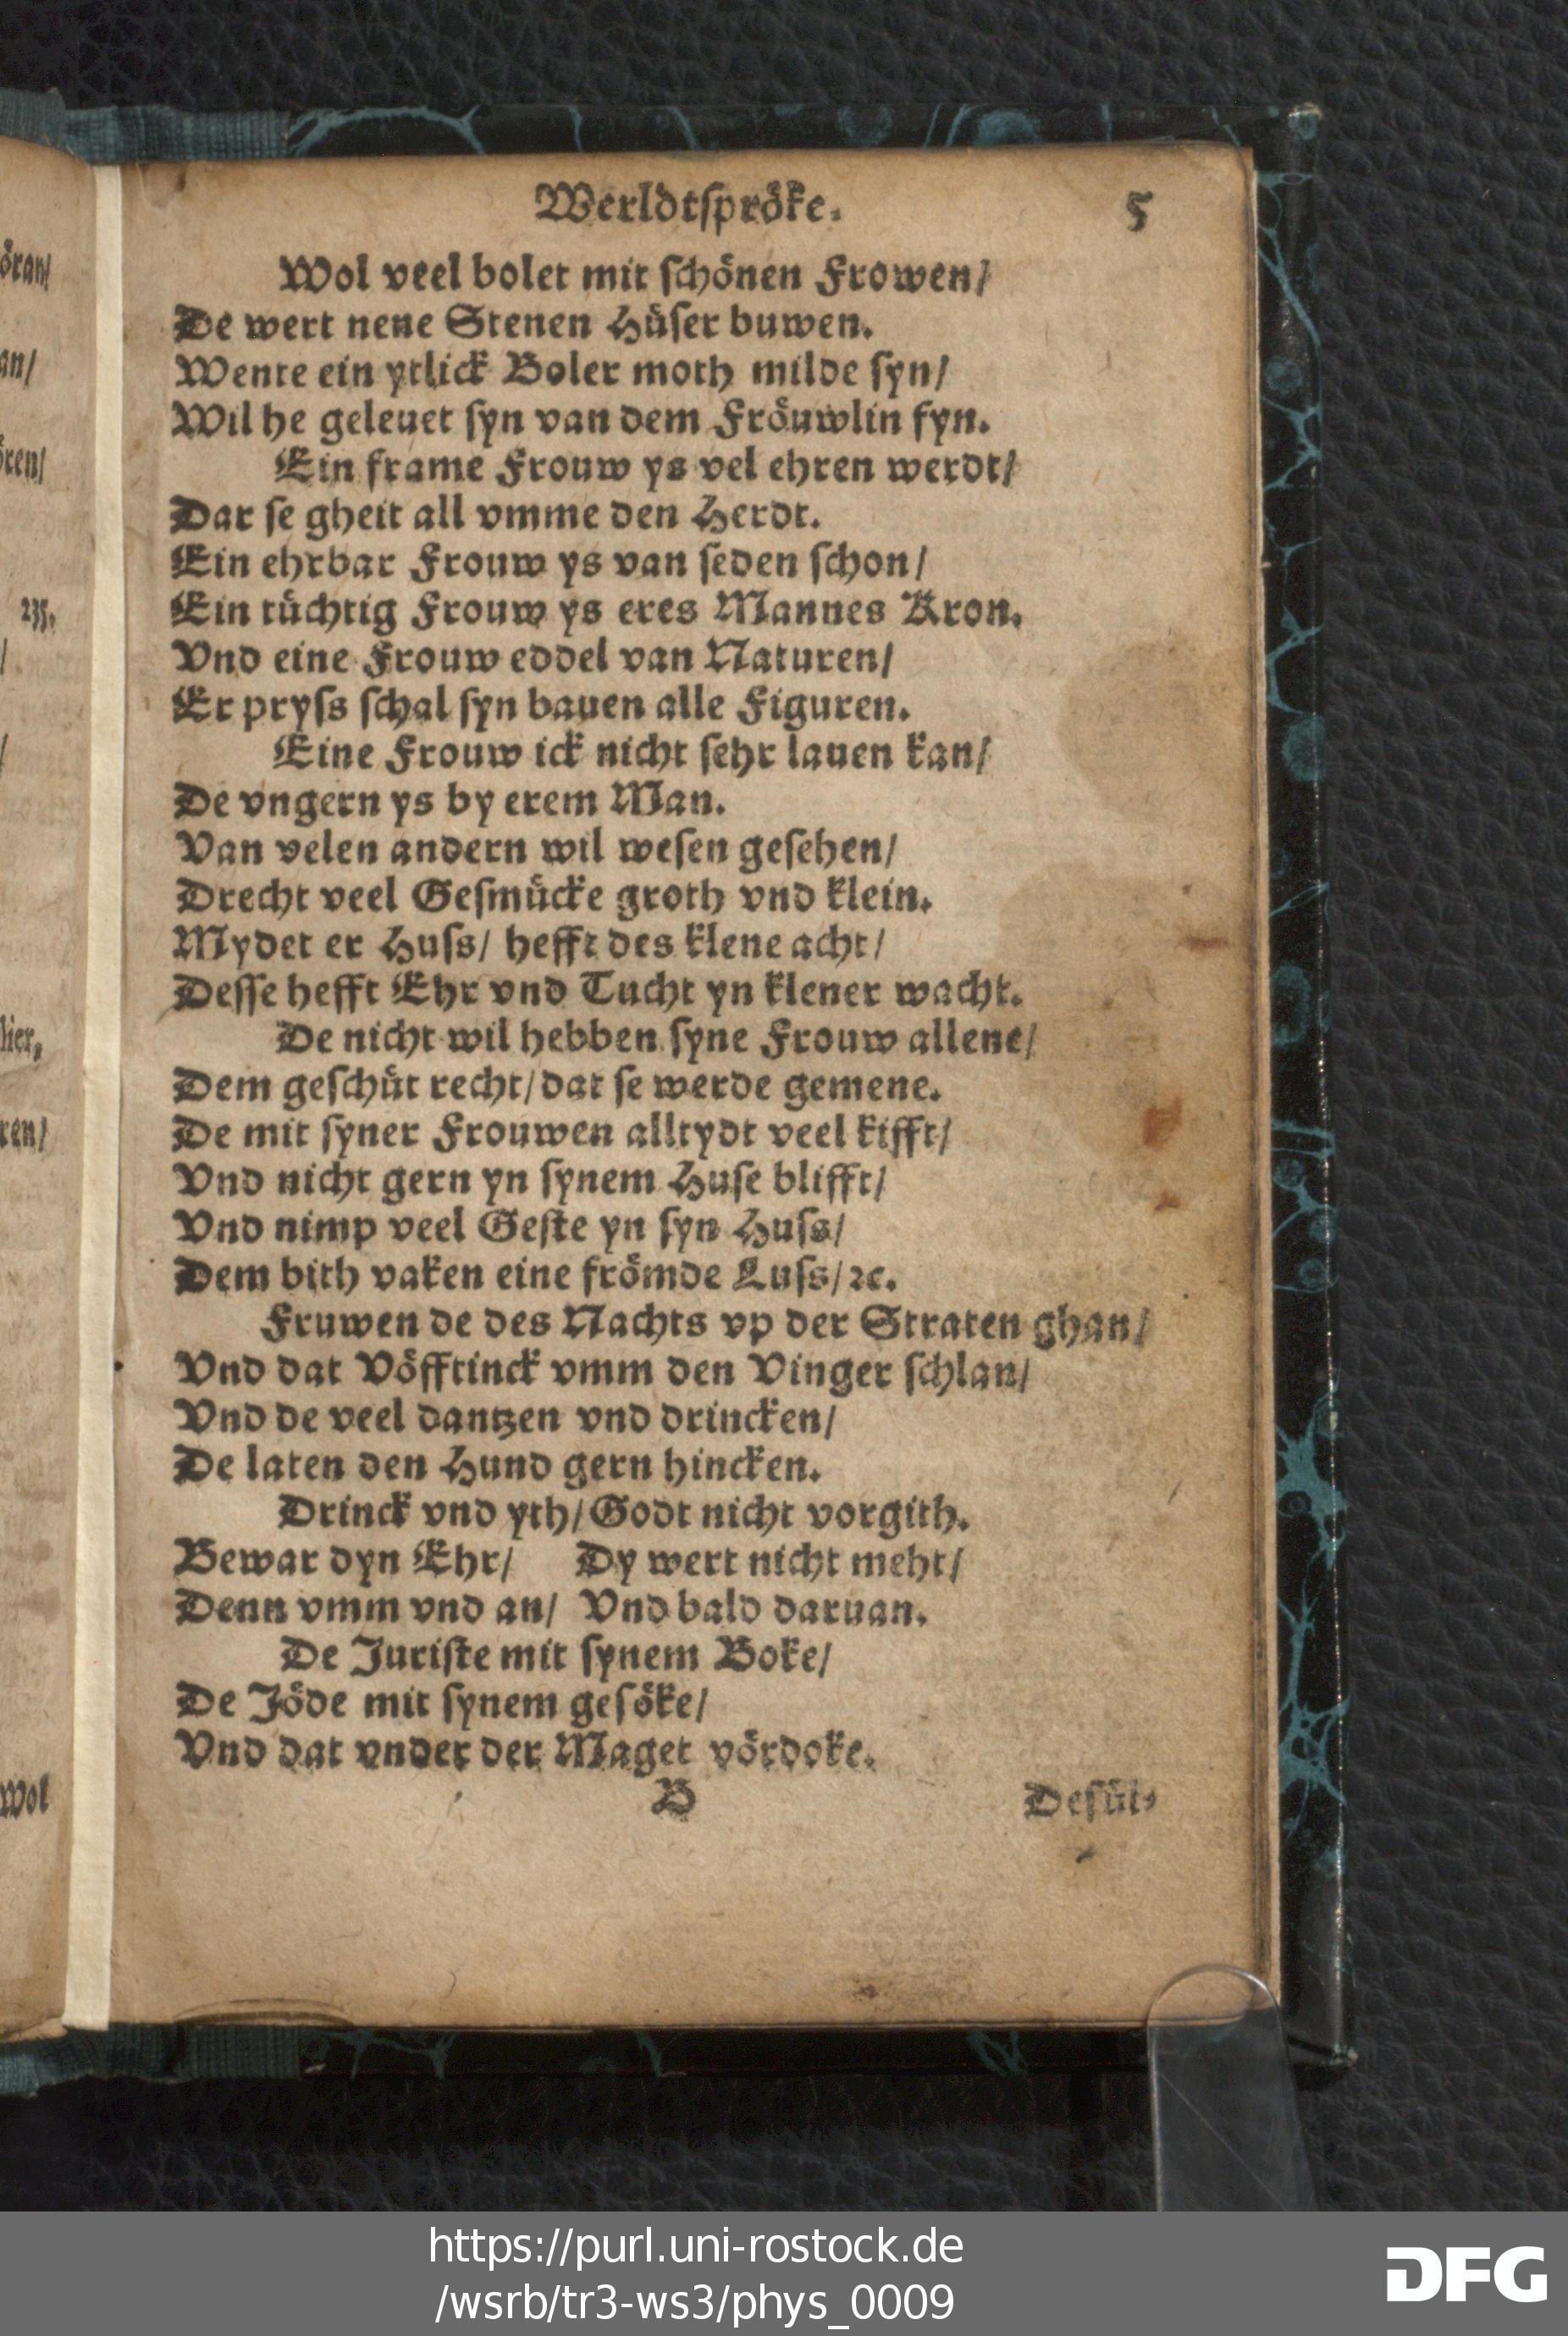 Werldtspröke. 5
Wol veel bolet mit schönen Frowen/
De wert nene Stenen Hüser buwen.
Wente ein ytlick Boler moth milde syn/
Wil he geleuet syn van dem Fröuwlin fyn.
Ein frame Frouw ys vel ehren werdt/
Dar se gheit all vmme den Herdt.
Ein ehrbar Frouw ys van seden schon/
Ein tüchtig Frouw ys eres Mannes Kron.
Vnd eine Frouw eddel van Naturen/
Er pryss schal syn bauen alle Figuren.
Eine Frouw ick nicht sehr lauen kan/
De vngern ys by erem Man.
Van velen andern wil wesen gesehen/
Drecht veel Gesmücke groth vnd klein.
Mydet er Huss/ hefft des klene acht/
Desse hefft Ehr vnd Tucht yn klener wacht.
De nicht wil hebben syne Frouw allene/
Dem geschüt recht/ dat se werde gemene.
De mit syner Frouwen alltydt veel kifft/
Vnd nicht gern yn synem Huse blifft/
Vnd nimp veel Geste yn syn Huss/
Dem bith vaken eine frömde Luss/ ꝛc.
Fruwen de des Nachts vp der Straten ghan/
Vnd dat Vöfftinck vmm den Vinger schlan/
Vnd de veel dantzen vnd drincken/
De laten den Hund gern hincken.
Drinck vnd yth/ Godt nicht vorgith.
Bewar dyn Ehr/ Dy wert nicht mehr/
Denn vmm vnd an/ Vnd bald daruan.
De Juriste mit synem Boke/
De Jöde mit synem gesöke/
Vnd dat vnder der Maget vördoke.
B Desül-
öran/
an/
ören/
235.
/
/
lier,
ren/
Wol
https://purl.uni-rostock.de
/wsrb/tr3-ws3/phys_0009
DFG